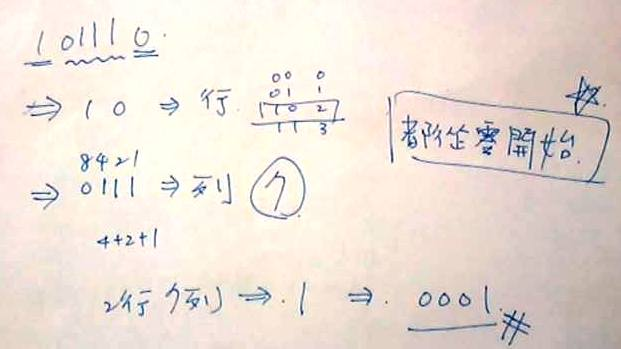 101110.
⇒ 10 ⇒ 行
00 0
01 1
10 2
11 3
都從零開始
8421
⇒ 0111 ⇒ 列 7
4+2+1
2行7列 ⇒ 1 ⇒ 0001 #